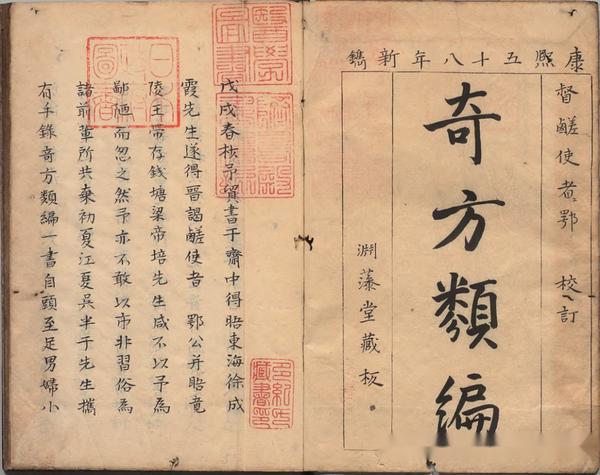 康熙五十八年新鐫
督鹺使者鄂 校訂
奇方類編
淵藻堂藏核
戊戌春核予貿書于齋中得晤東海徐成
霞先生遂得晉謁鹺使者 鄂公并晤竟
陵王帶存錢塘梁帝培先生咸不以予為
鄙陋而忽之然予亦不敢以市非習俗為
諸前輩所共棄初夏江夏吳半于先生攜
有手錄奇方類編一書自頭至足男婦小